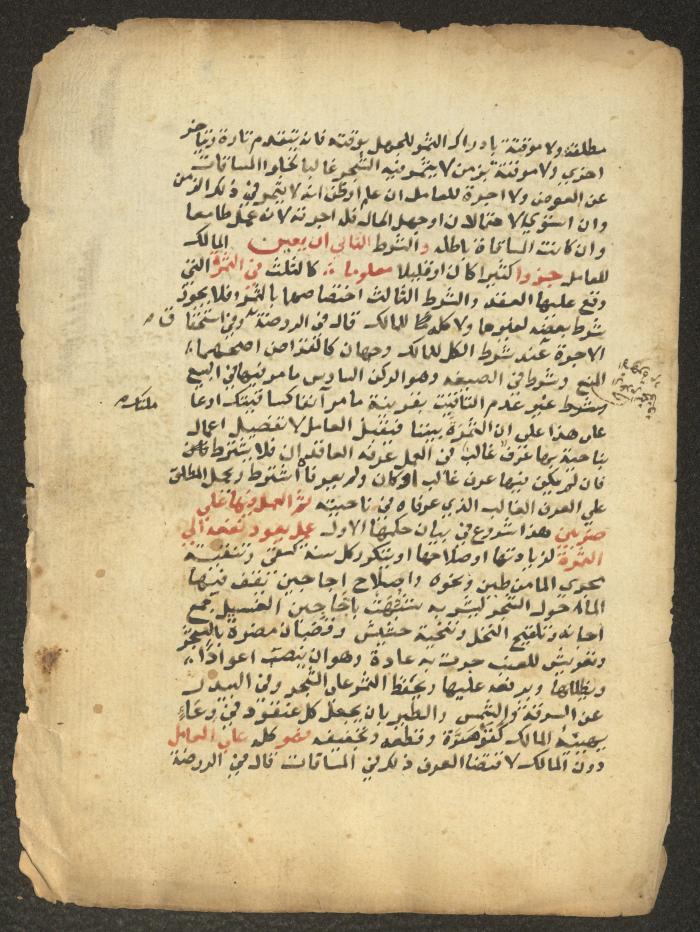 مطلقة ولا موقتة بادراك الثمر للجهل بوقته فانه يتقدم تارة ويتاخر
اخري ولا موقتة بزمن لا يثمر فيه الشجر غالبا لخلوا المساقات
عن العوض ولا اجرة للعامل ان علم او ظن انه لا يثمر في ذلك الزمن
وان استوي الاحتمالان او جهل الحال فله اجرته لانه عمل طامعا
وان كانت المساقاة باطله والشرط الثاني ان يعين المالك
للعامل جزوا كثيرا كان او قليلا معلوما كالثلث من الثمرة التي
وقع عليها العقد والشرط الثالث اختصاصهما بالثمرة فلا يجوز
شرط بعضه لغيرهما ولا كله للمالك قال في الروضة وفي استحقاق
الاجرة عند شرط الكل للمالك وجهان كالقراض اصحهما
المنع وشرط في الصيغة وهو الركن السادس ما مر فيها في البيع
بشرط غير عدم التاقيت بقرينة ما مر آنفا كساقيتك او عا
ملتك
على هذا على ان الثمرة بيننا فيقبل العامل لا تفصيل اعمال
بناحية بها عرف غالب في العمل عرفه العاقدان فلا يشترط
فان لم يكن فيها عرف غالب او كان ولم يعرفاه اشترط ويحمل المطلق
علي العرف الغالب الذي عرفاه في ناحيته ثم العمل فيها علي
ضربين هذا شروع في بيان حكمها الاول عمل يعود نفعه الي
الثمرة لزيادتها او صلاحها او يتكرر كل سنة كسقي وتنقية
مجري الما من طين ونحوه واصلاح اجاجين يقف فيها
الماء حول الشجر ليشربه شبهت باجاجين الغسيل جمع
اجانة وتلقيح النخل وتنحية حشيش وقضبان مضرة بالشجر
وتعريش للعنب جرت به عادة وهو ان ينصب اعوادا
ويظللها ويرفعه عليها ويحفظ الثمر على الشجر وفي البيدر
عن السرقة والشمس والطير بان يجعل كل عنقود في وعاء
يهيئه المالك كقوصرة وقطعه وتجفيفه فهو كله علي العامل
دون المالك لاقتضا العرف ذلك في المساقات قال في الروضة